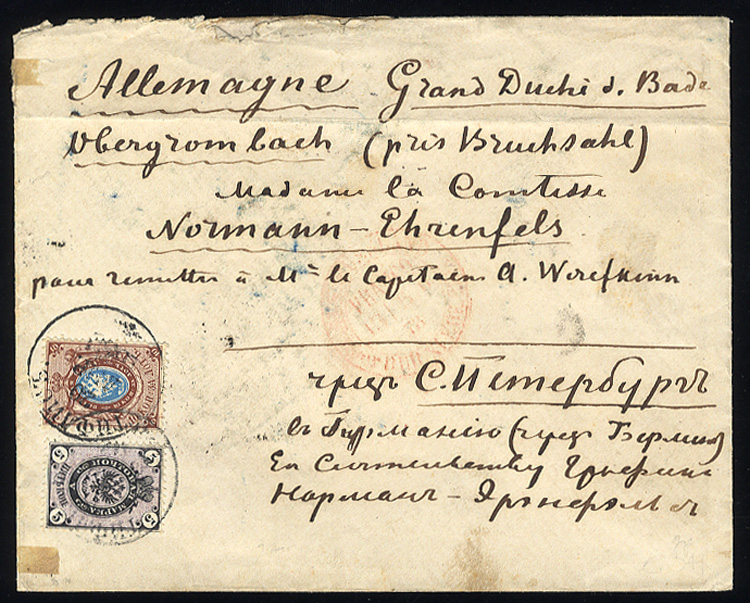 Allemagne Grand Duché d. Bade
Obergrombach (près Bruchsahl)
Madame la Comtesse
Normann-Ehrenfels
pour remettre à Mr le Capitaine A. Werefkinn
чрезъ С. Петербургъ
въ Германію (чрез Берлин)
Ея Сіятельству Графине
Норманъ-Эренфельсъ
5 5
5 5